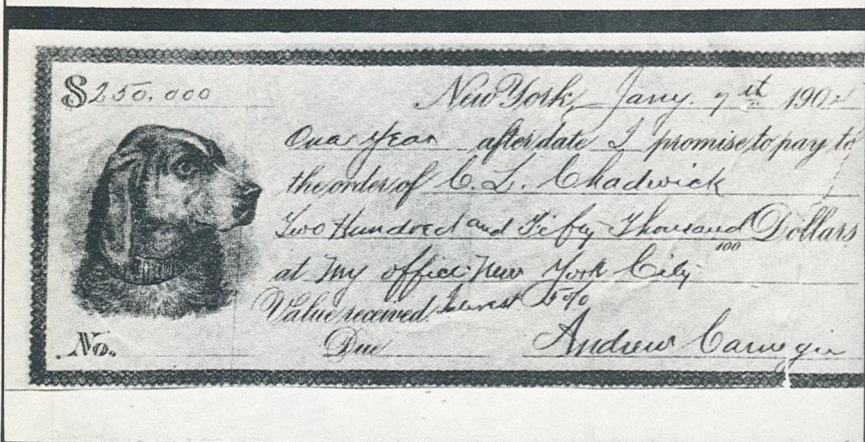 $250.000 New York, Jany. 7th 1904
One year after date I promise to pay to
the order of C. L. Chadwick
Two Hundred and Fifty Thousand 100 Dollars
at my office New York City
Value received. Interest 5%
No. Due Andrew Carnegie